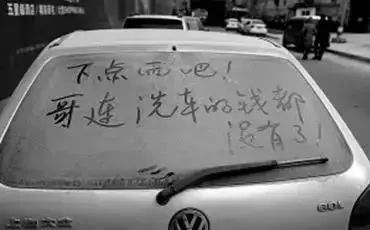 下点雨吧！
哥连洗车的钱都
没有了！
上海大众
GOL